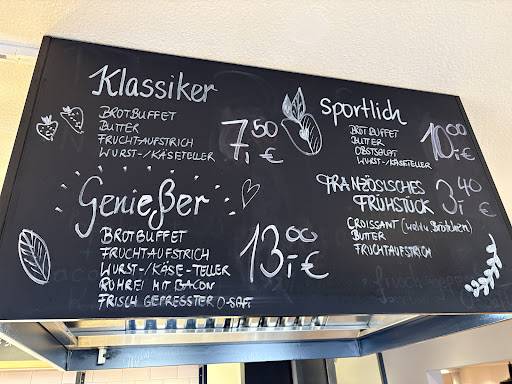 Klassiker
BROTBUFFET
BUTTER
FRUCHTAUFSTRICH
WURST-/KÄSETELLER
7,50 €
Sportlich
BROTBUFFET
BUTTER
OBSTSALAT
WURST-/KÄSETELLER
10,00 €
Genießer
BROTBUFFET
FRUCHTAUFSTRICH
WURST-/KÄSE-TELLER
RÜHREI MIT BACON
FRISCH GEPRESSTER O-SAFT
13,00 €
FRANZÖSISCHES
FRÜHSTÜCK
3,40 €
CROISSANT (Brötchen)
BUTTER
FRUCHTAUFSTRICH